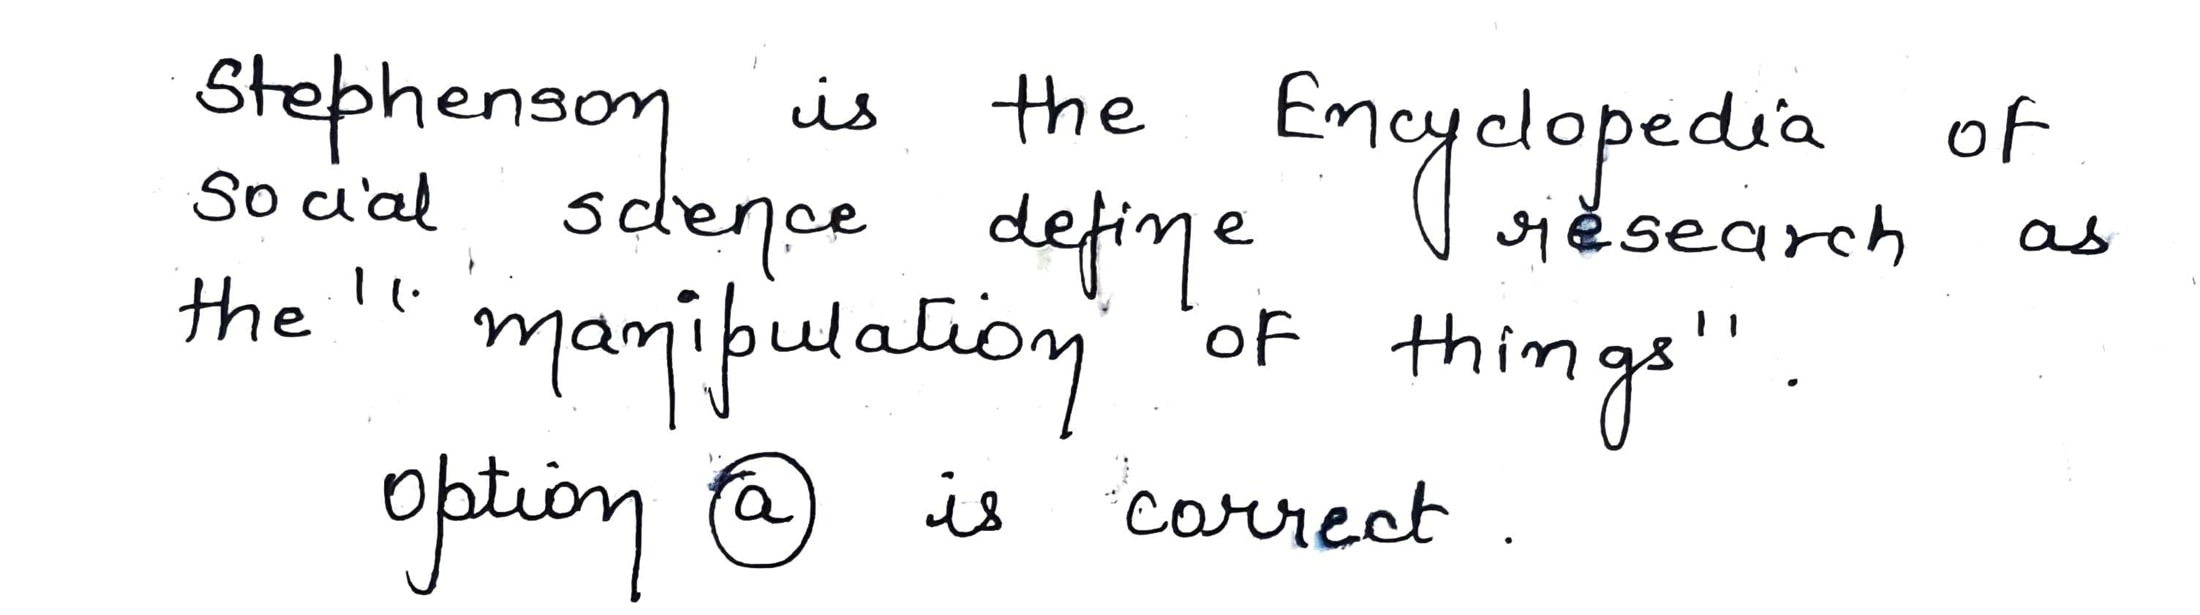 Stephenson is the Encyclopedia of
social science define research as
the "manipulation of things".
option (a) is correct.